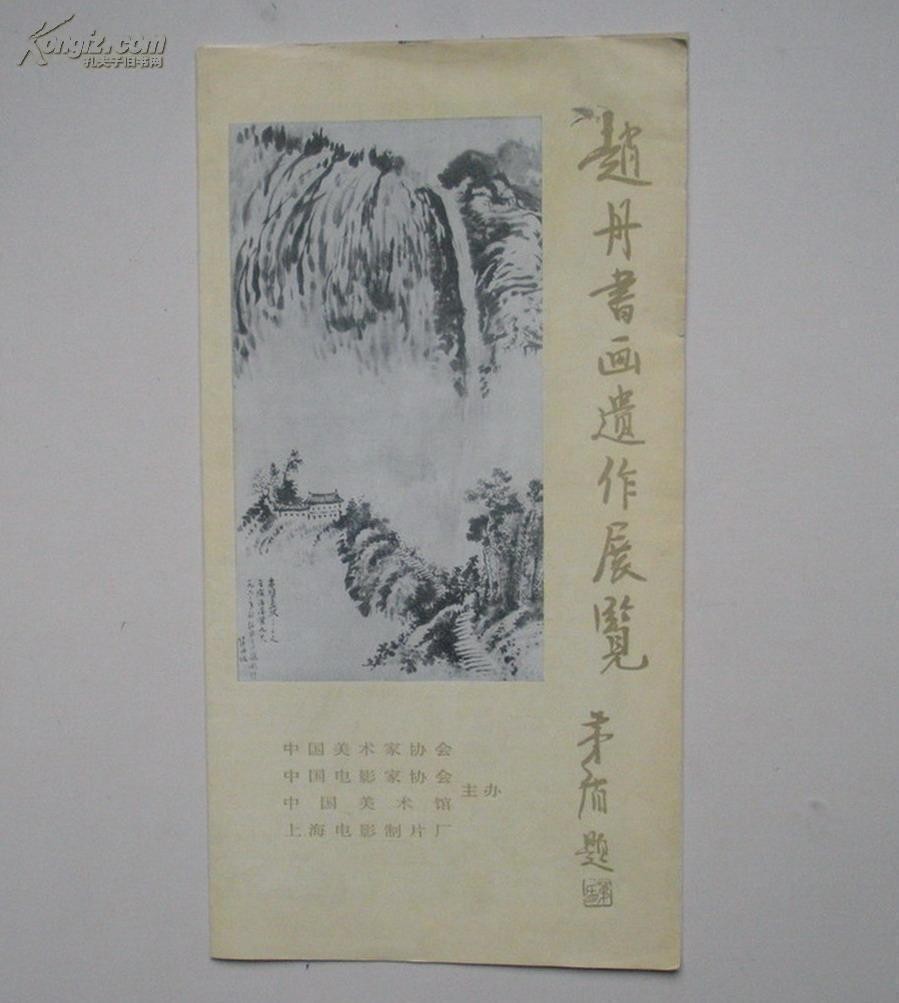 Kongfz.com
孔夫子旧书网
趙丹書画遺作展覽
茅盾題
中国美术家协会
中国电影家协会
中国美术馆
上海电影制片厂
主办